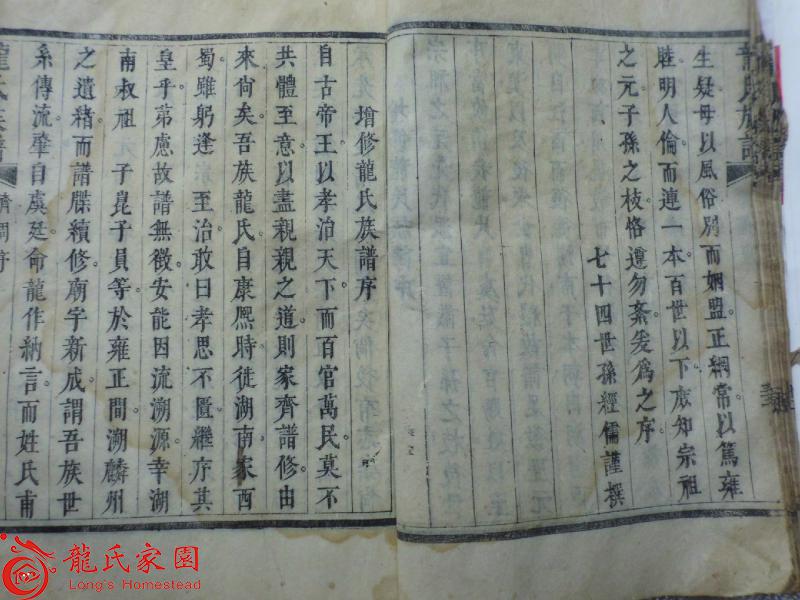 生疑毋以風俗別而姻盟正綱常以篤雍
睦明人倫而連一本百世以下庶知宗祖
之元子孫之枝恪遵勿紊爰為之序
七十四世孫經儒謹撰
增修龍氏族譜序
自古帝王以孝治天下而百官萬民莫不
共體至意以盡親親之道則家齊譜修由
來尚矣吾族龍氏自康熙時徙湖南家西
蜀雖躬逢至治敢曰孝思不匱繼序其
皇乎第慮故譜無徵安能因流溯源幸湖
南叔祖子崑子員等於雍正間溯麟州
之遺緒而譜牒續修廟宇新成謂吾族世
系傳流肇自虞廷命龍作納言而姓氏甫
龍氏族譜
龍氏家園
Long's Homestead